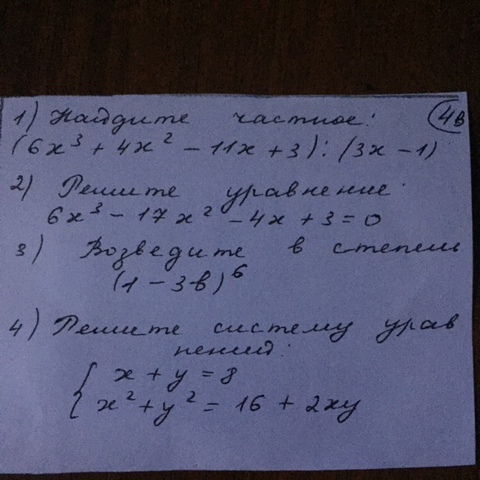 1) Найдите частное: 4в
(6x³ + 4x² - 11x + 3) : (3x - 1)
2) Решите уравнение:
6x³ - 17x² - 4x + 3 = 0
3) Возведите в степень
(1 - 3в)⁶
4) Решите систему урав
нений:
{ x + y = 8
{ x² + y² = 16 + 2xy